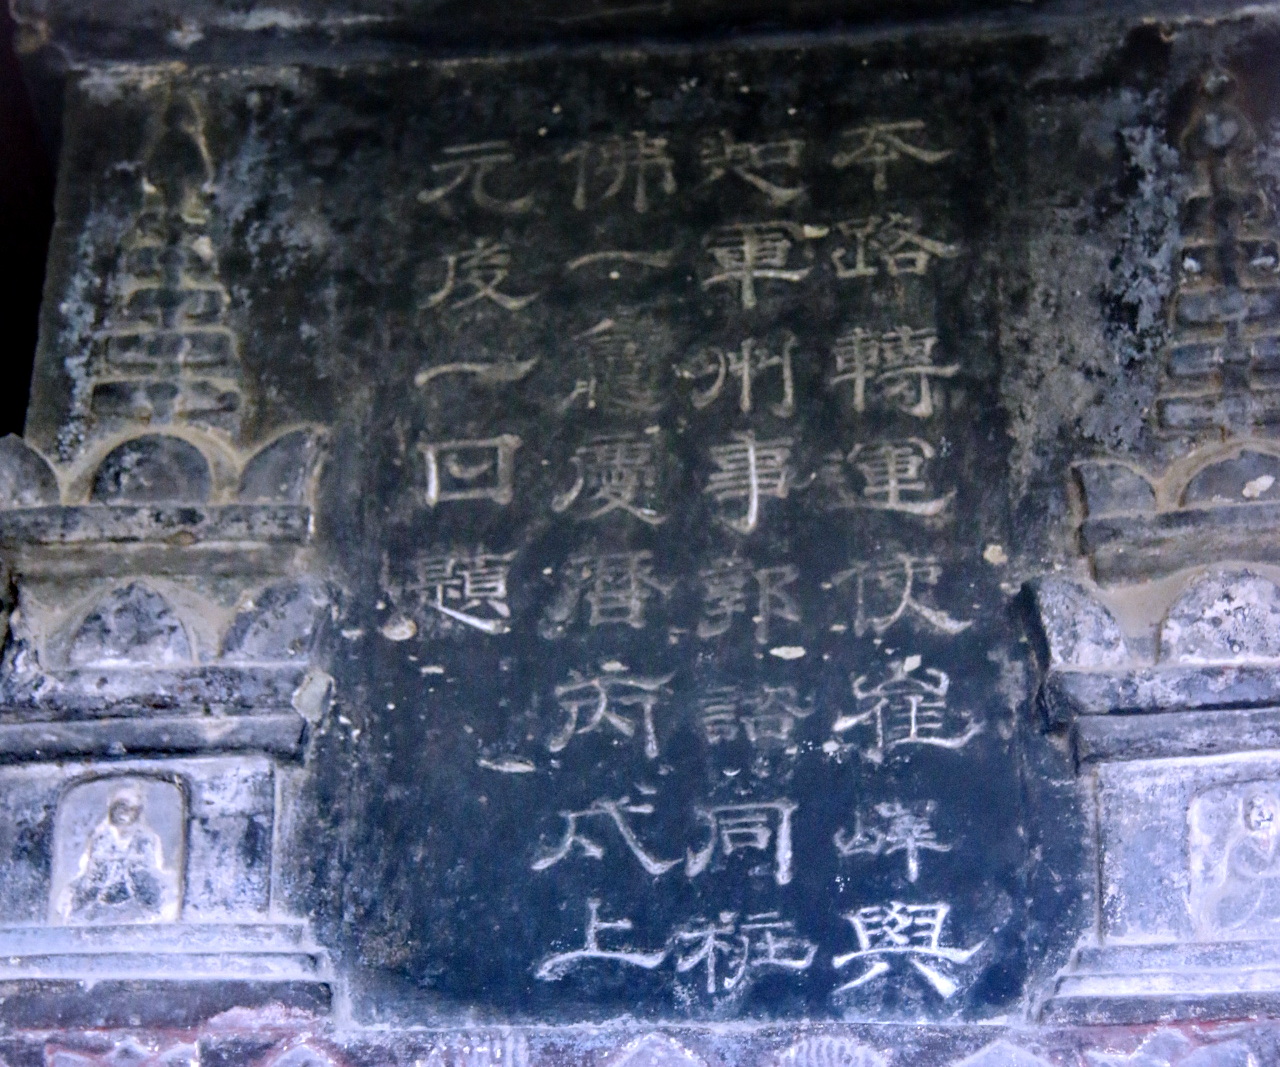 本路轉運使崔嶧與
知軍州事郭諮同粧
佛一龕慶曆丙戌上
元後一日題